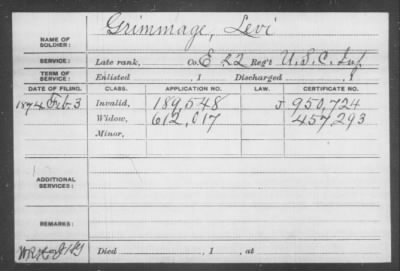 NAME OF SOLDIER: Grimmage, Levi
SERVICE: Late rank, Co. E 22 Reg't U.S.C. Inf.
TERM OF SERVICE: Enlisted , 1 Discharged , 1
DATE OF FILING. CLASS. APPLICATION NO. LAW. CERTIFICATE NO.
1874 Feb. 3 Invalid, 189,548 J 950,724
Widow, 612,017 457,293
Minor,
ADDITIONAL SERVICES:
REMARKS:
Died , 1 , at